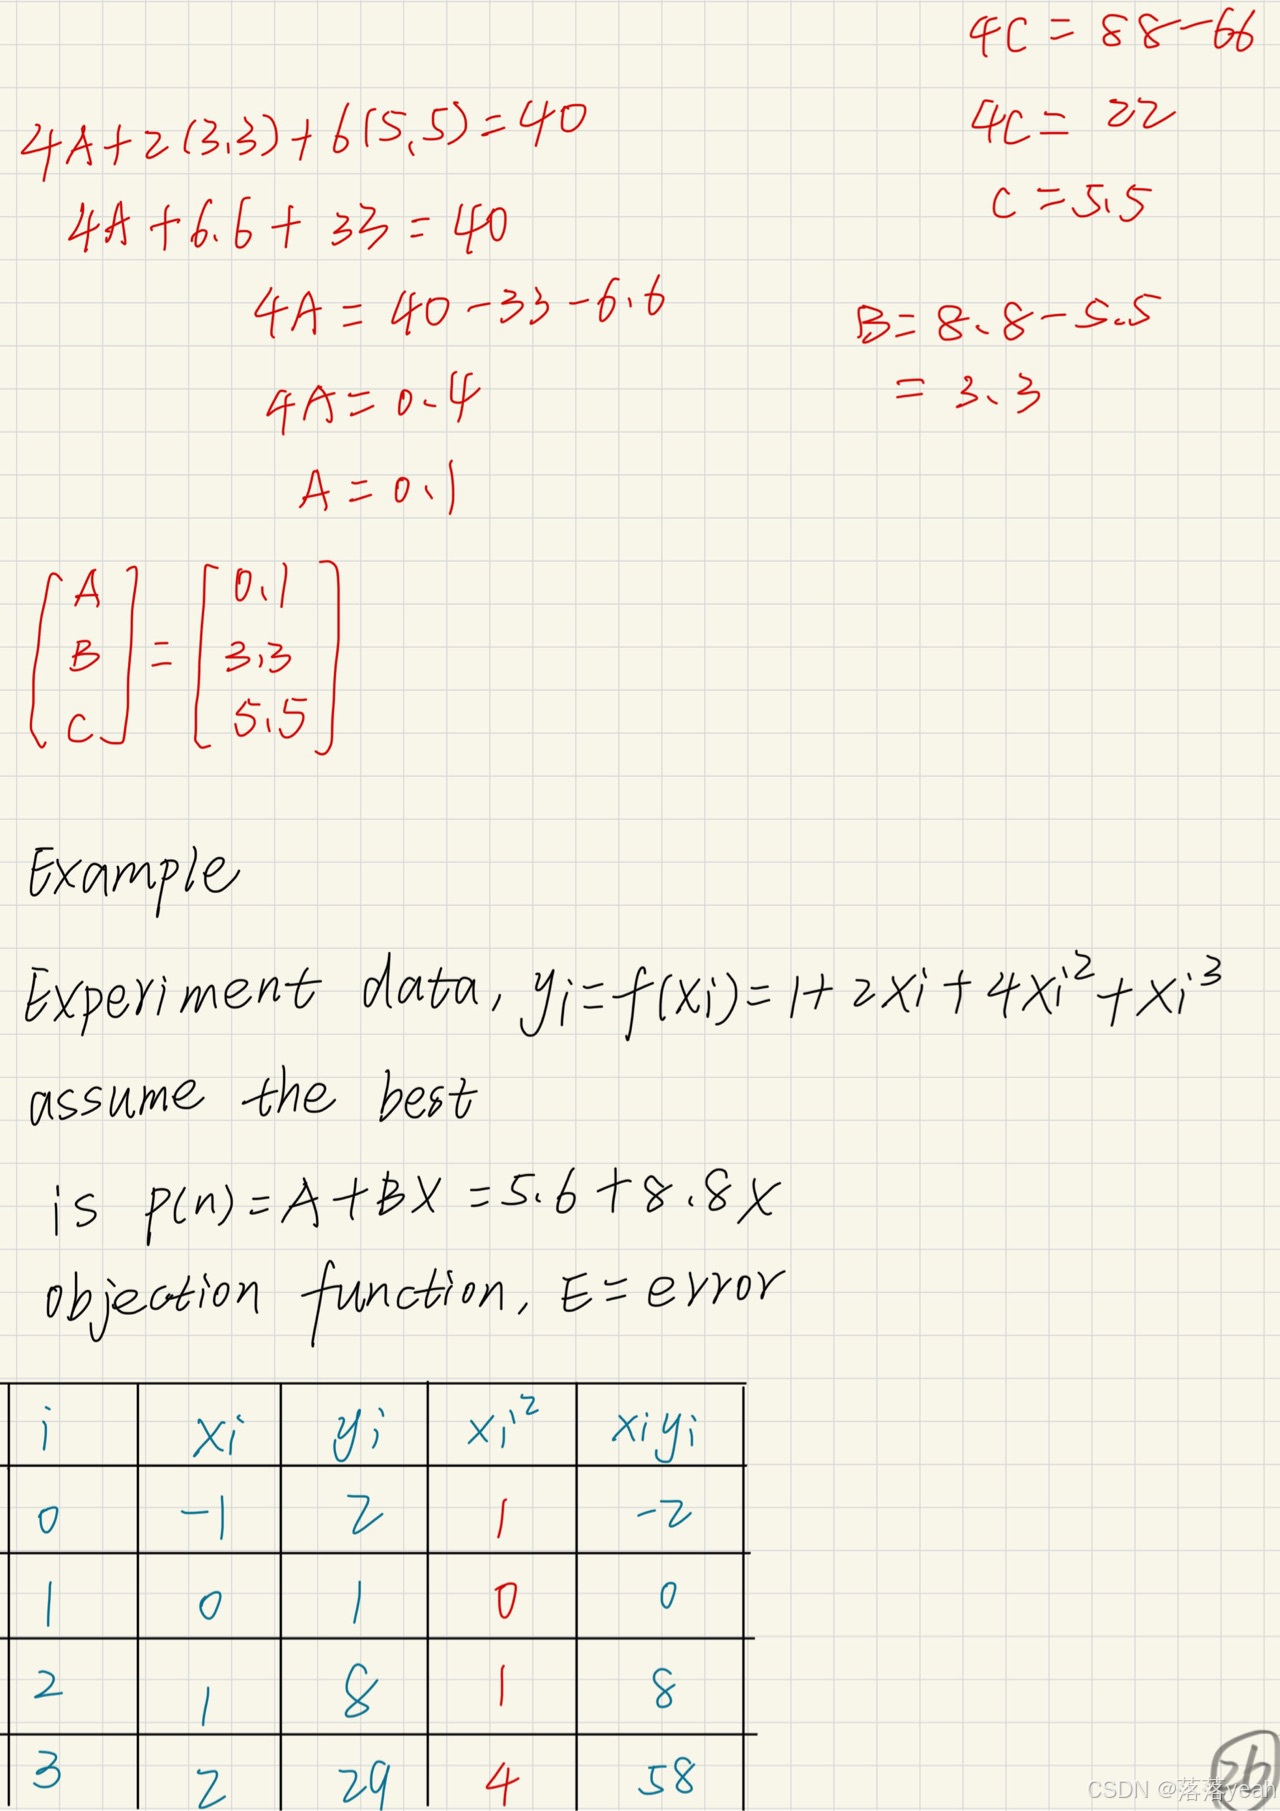 4C = 88-66
4C = 22
C = 5.5
B = 8.8-5.5
= 3.3
4A+2(3.3)+6(5.5)=40
4A+6.6+33=40
4A=40-33-6.6
4A=0.4
A=0.1
[A B C] = [0.1 3.3 5.5]
Example
Experiment data, yi=f(xi)=1+2xi+4xi²+xi³
assume the best
is P(n)=A+BX=5.6+8.8X
objection function, E=error
i xi yi xi² xiyi
0 -1 2 1 -2
1 0 1 0 0
2 1 8 1 8
3 2 29 4 58
26
CSDN @落落yeah